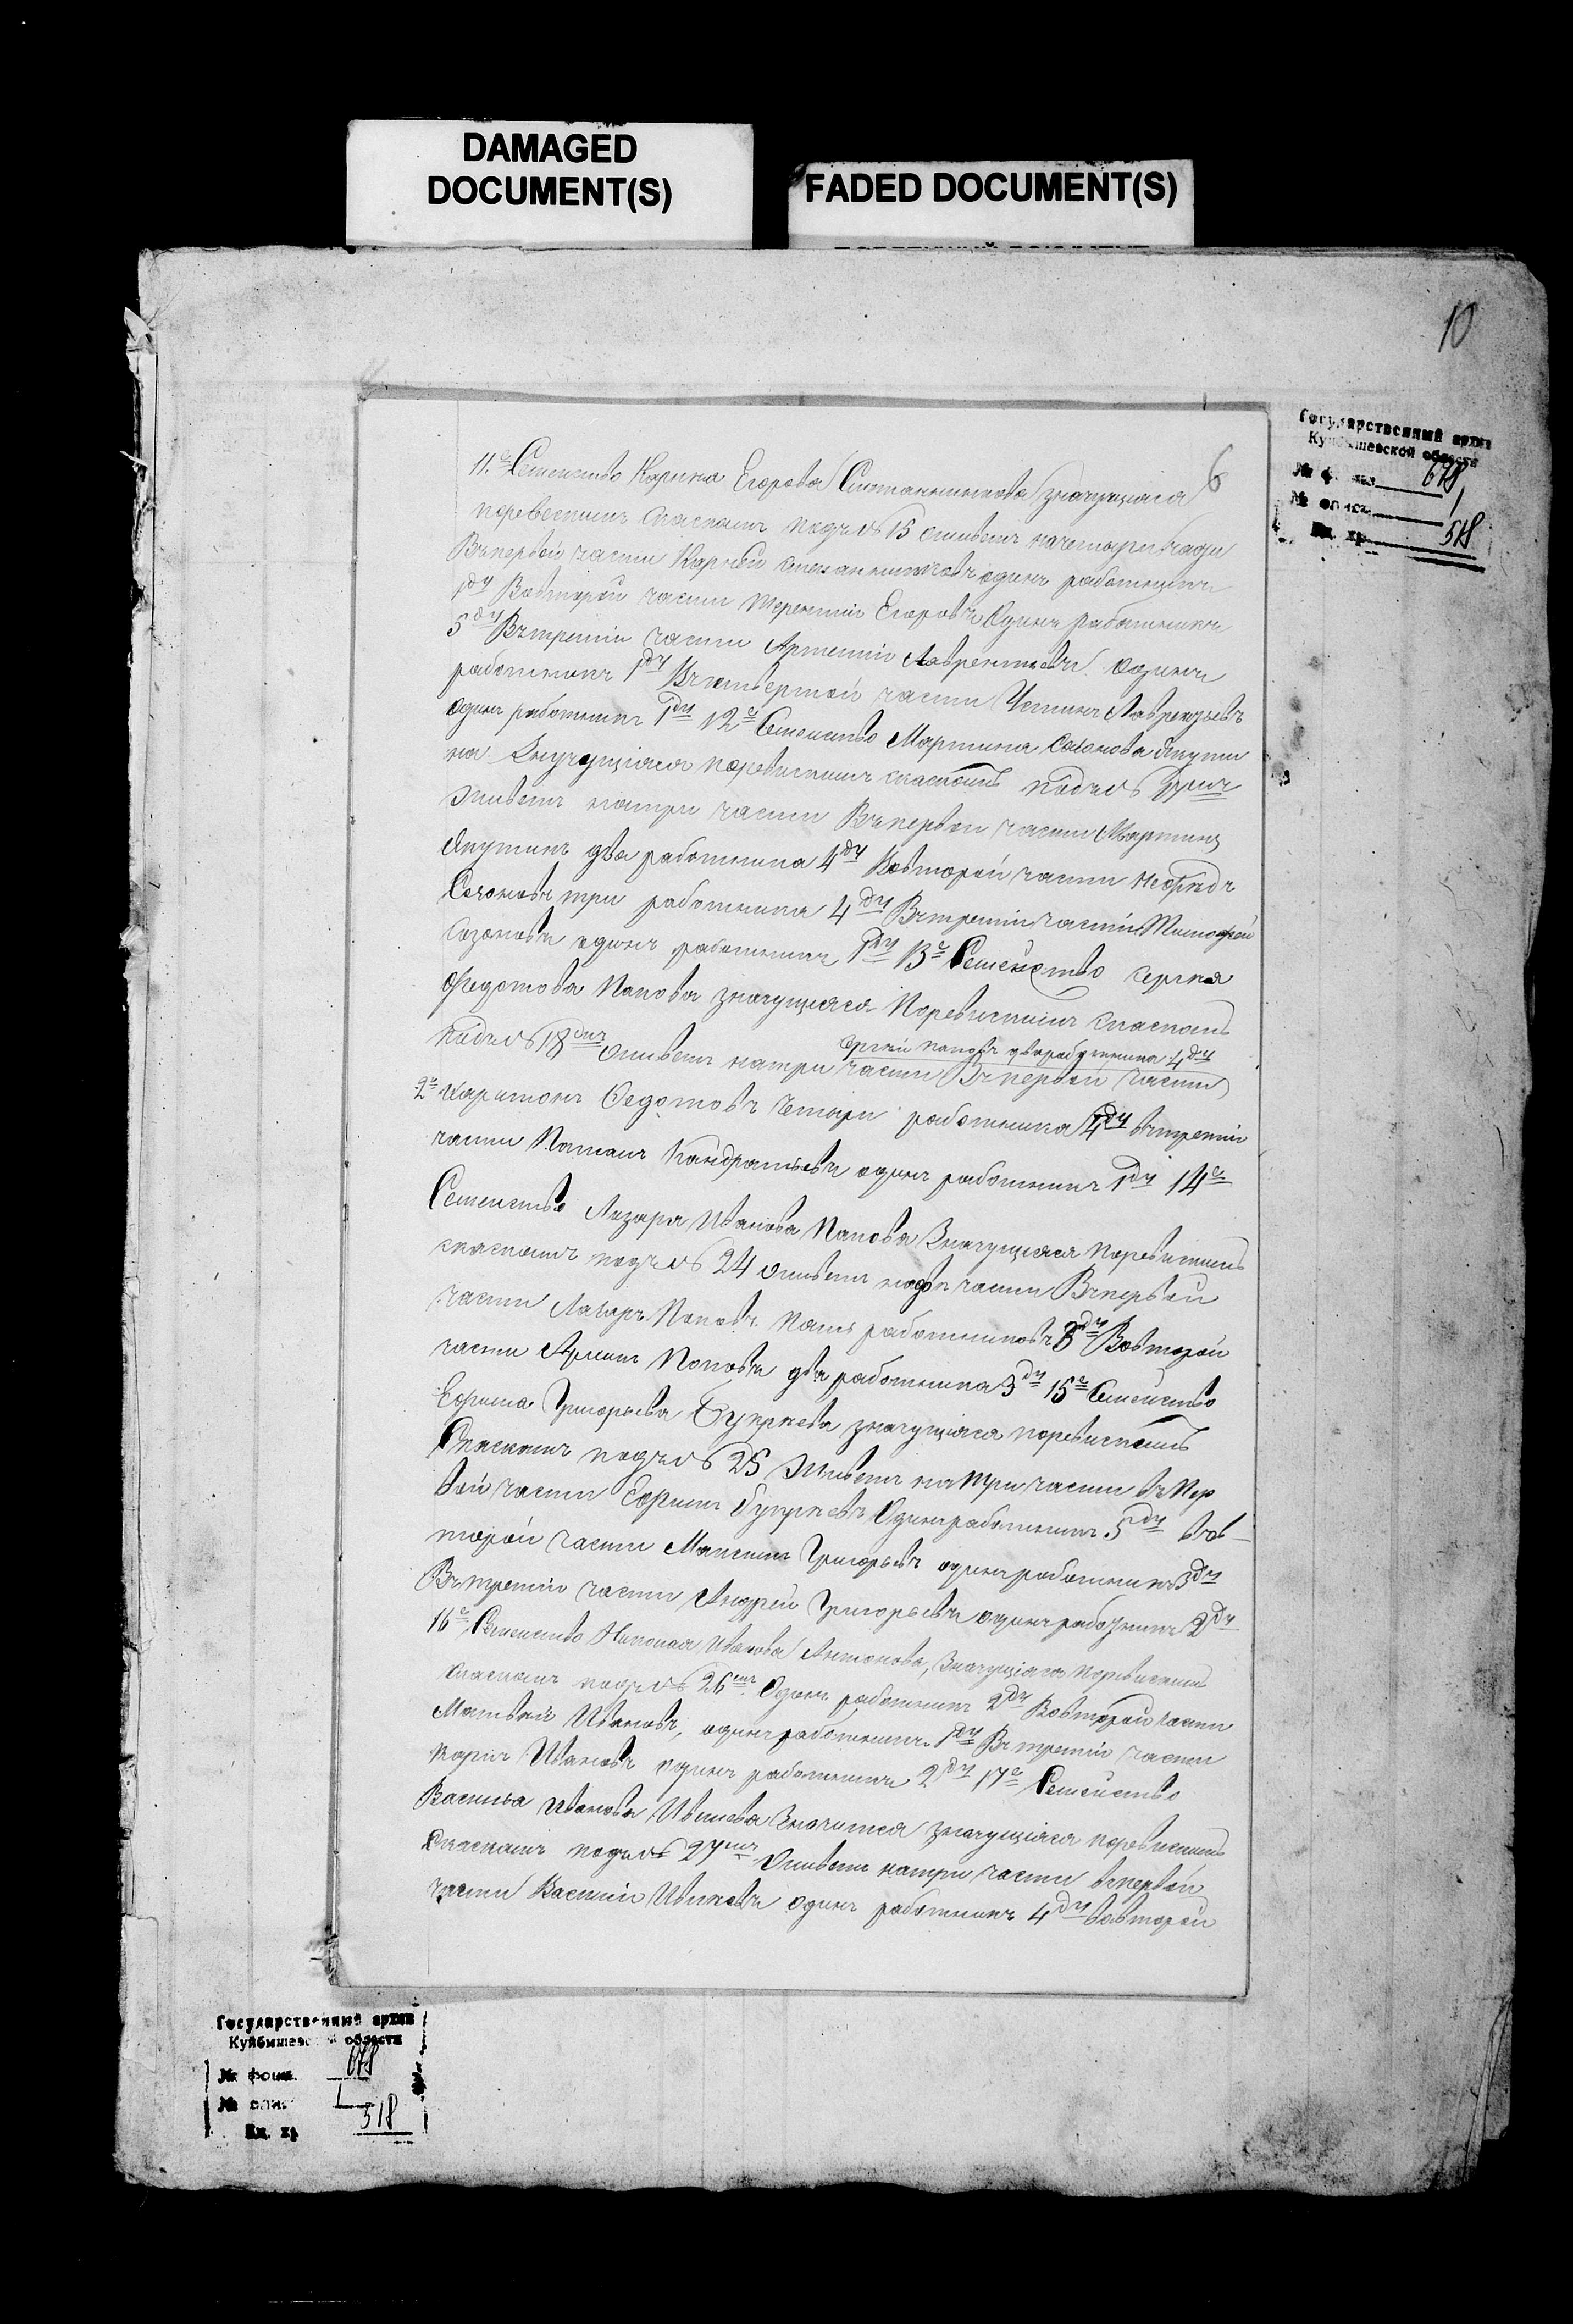 DAMAGED
DOCUMENT(S)
FADED DOCUMENT(S)
10
Государственный архив
Куйбышевской области
№ фонда 678
№ описи 1
Ед. хр. 518
6
11.е Семенство Карпна Егорова Ситанникова значущиася
поревеским скаскам подъ № 15 оживетъ начетыри части
Въпервой части Карпей Ситанниковъ одинъ работникъ
1ду Вовторой части Терентий Егоровъ Одинъ работникъ
5ду Вътретии части Артемий Лаврентьевъ Одинъ
работникъ 1ду Въчетвертой части Устинъ Лаврентьевъ
один работникъ 1ду 12е Семенство Мартина Созонова Якути
на Значущиася поревиским скаскамъ подъ №
живетъ натри части Въпервои части Мартинъ
Якутинъ два работника 4ду Вовторой части Нефидъ
Созоновъ три работника 4ду Вътретии части Тимофей
Созоновъ одинъ работникъ 1ду 13е Семейство Сергея
Федотова Попова значущиася Поревиским скаскамъ
подъ № 18 оживетъ натри части Въпервой части
Сергей поповъ два работника 4ду
2е Харитонъ Федотовъ Четыри работника 4ду вътретии
части Потапъ Кандратьевъ одинъ работникъ 1ду 14е
Семенство Лазаря Иванова Попова Значущиася поревиским
скаскамъ подъ № 24 оживетъ надве части Въпервой
части Лазаръ Поповъ Пять работниковъ 8ду Вовторой
части Поповъ два работника 3ду 15е Семейство
Ефима Григорьева Букрнева значущиася поревиским
Скаскамъ подъ № 25 живетъ натри части въпер
вой части Ефимъ Букрневъ Одинъ работникъ 5ду вов-
торой части Максимъ Григорьевъ одинъ работникъ 3ду
Вътретии части Андрей Григорьевъ одинъ работникъ 2ду
16е Семенство Николая Иванова Антонова, Значущиася поревиским
скаскамъ подъ № 26 Одинъ работникъ 2ду Вовторой части
Матвей Ивановъ, один работникъ 1ду Вътретии части
Карпъ Ивановъ один работникъ 2ду 17е Семейство
Василья Иванова Ивлиева Значится значущиася поревиским
Скаскамъ подъ № 27 Оживетъ натри части въпервой
части Василий Ивлиевъ один работникъ 4ду вовторой
Государственный архив
Куйбышевской области
№ фонд. 678
№ опис 1
Ед. хр. 518